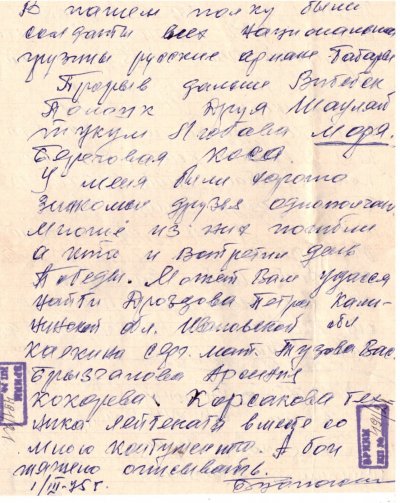 В нашем полку были
солдаты всех национально
грузины русские армяне Татары
Прорыв дальше Витебск
Полоцк Друя Шауляй
Тукум Лгобава Моря.
Береговая коса.
У меня были хорошо
знакомые друзья однополчани
Многие из них погибли
а кто и встретил день
Победы. Может Вам удастся
найти Дроздова Петра Кали-
нинской обл. Ивановской обл
серж. мат. Тузова Вас.
Корсакова Тех-
ника лейтенанта вместе со
мною контуженого. А бои
тяжело описывать.
1/III-75 г.